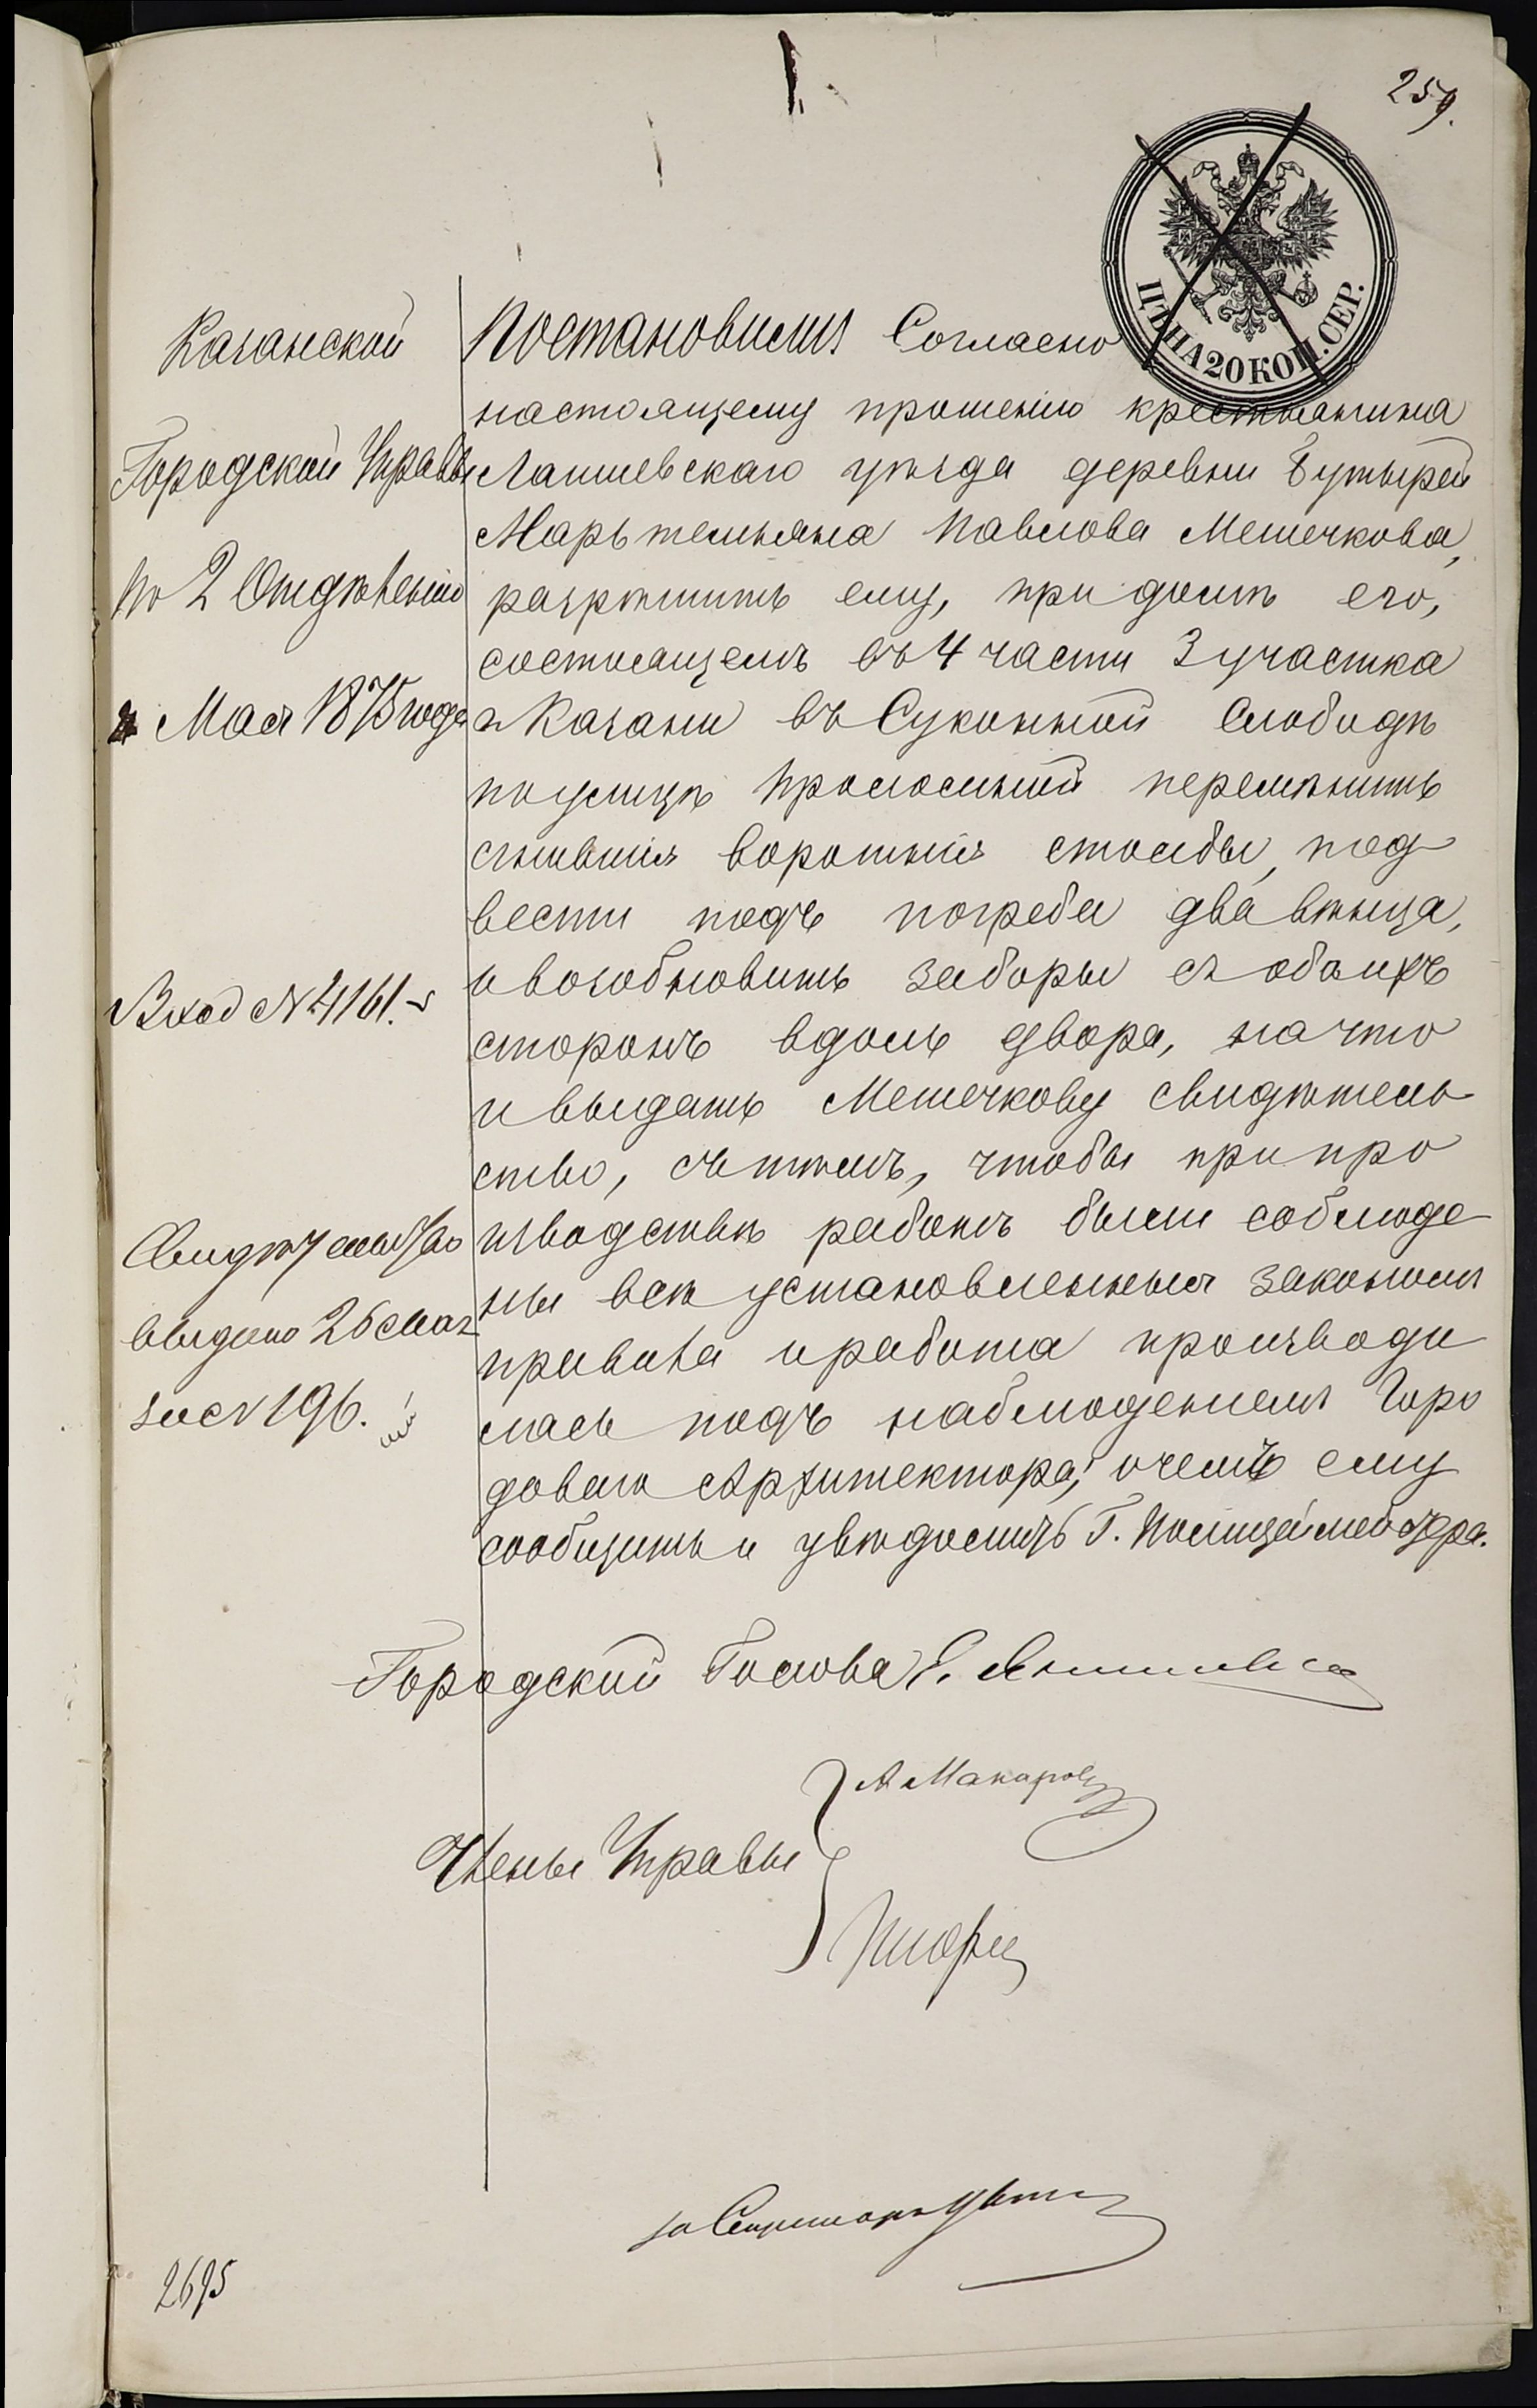 259.
ЦѢНА 20 КОП. СЕР.
Казанской
Городской Управы
По 2 Отдѣленію
Мая 1875 года
Вход № 4161.
Свидѣт
выдано 26 мая
за № 196.
Постановили Согласно
настоящему прошенію крестьянина
Лаишевскаго уѣзда деревни Бутырей
Мартемьяна Павлова Мешечкова,
разрѣшить ему, при домѣ его,
состоящемъ въ 4 части 3 участка
г. Казани въ Суконной Слободѣ
по улицѣ Проломной перемѣнить
сгнившія воротнія столбы, под
вести подъ погреба два вѣнца,
и возобновить заборы съ обоихъ
сторонъ вдоль двора, на что
и выдать Мешечкову свидѣтель
ство, съ тѣмъ, чтобы при про
изводствѣ работъ были соблюде
ны всѣ установленныя закономъ
правила и работа производи
лась подъ наблюденіемъ Горо
доваго Архитектора; о чемъ ему
сообщить и увѣдомить Г. Полицеймейстера.
Городской Голова
А Макаровъ
Члены Управы
за Секретаря
2695